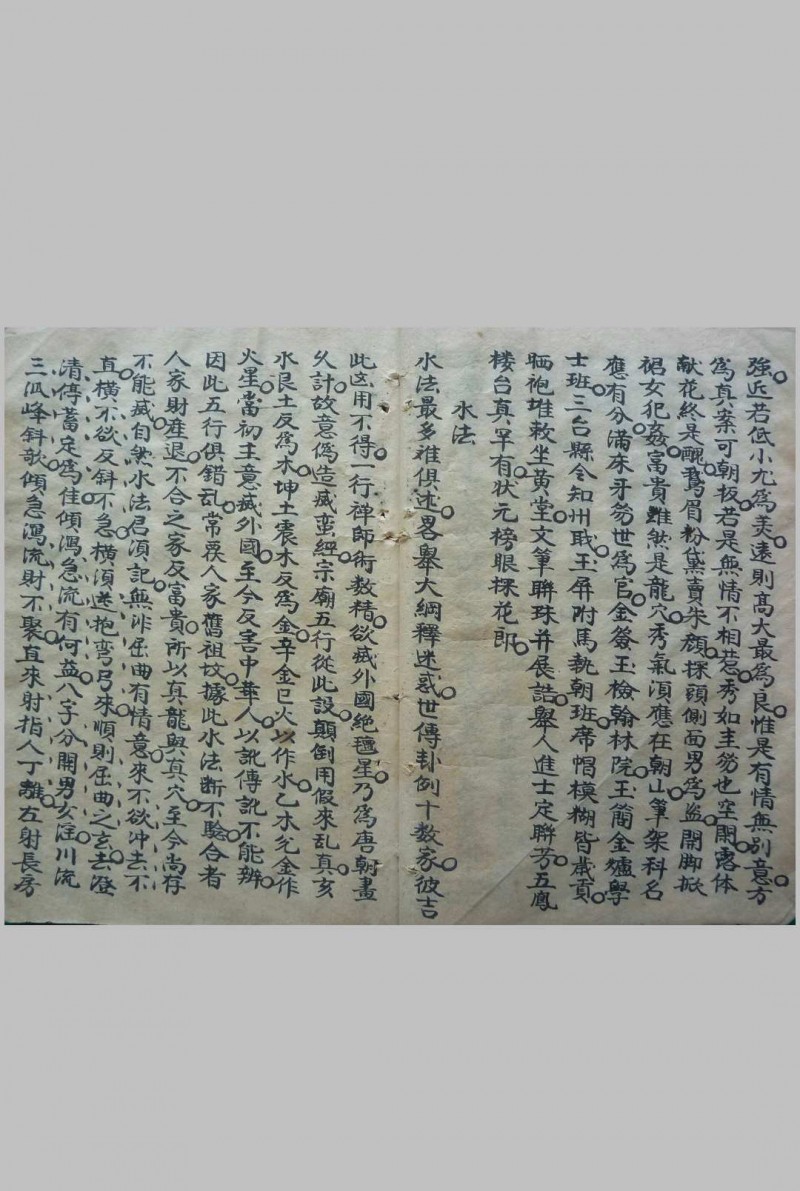 強近若低小尤為美遠則高大最為良惟是有情無別意方
為真案可朝扳若是無情不相惹秀如圭笏也空開露体
献花終是醜鵞眉粉黛賣朱顏探頭側面男為盗開脚掀
裙女犯姦富貴雖然是龍穴秀氣須應在朝山筆架科名
應有分滿床牙笏世為官金簽玉檢翰林院玉簡金爐學
士班三台縣令知州職玉屏附馬執朝班席帽模糊皆歲貢
晒袍堆敕坐黃堂文筆聯珠并展誥舉人進士定聯芳五鳳
楼台真罕有狀元榜眼探花郎
水法
水法最多难俱述畧舉大綱釋迷惑世傳卦例十数家彼吉
此凶用不得一行禅師術数精欲滅外國絶彗星乃為唐朝畫
久計故意偽造滅蛮經宗廟五行從此設顛倒用假來乱真亥
水艮土反為木坤土震木反為金辛金巳火以作水乙木兊金作
火星當初主意滅外國至今反害中華人以訛傳訛不能辨
因此五行俱錯乱常覌人家舊祖坟據此水法断不驗合者
人家財産退不合之家反富貴所以真龍與真穴至今尚存
不能滅自然水法君須記無非屈曲有情意來不欲冲去不
直橫不欲反斜不急橫須遶抱弯弓來順則屈曲之玄去澄
清停蓄定為佳傾瀉急流有何益八字分開男女淫川流
三派峰斜欹傾急瀉流財不聚直來射指人丁離左射長房